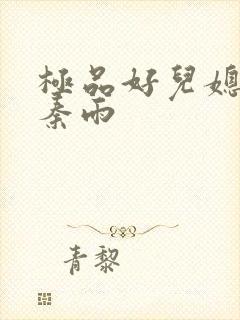 極品好兒媳
秦雨
青黎